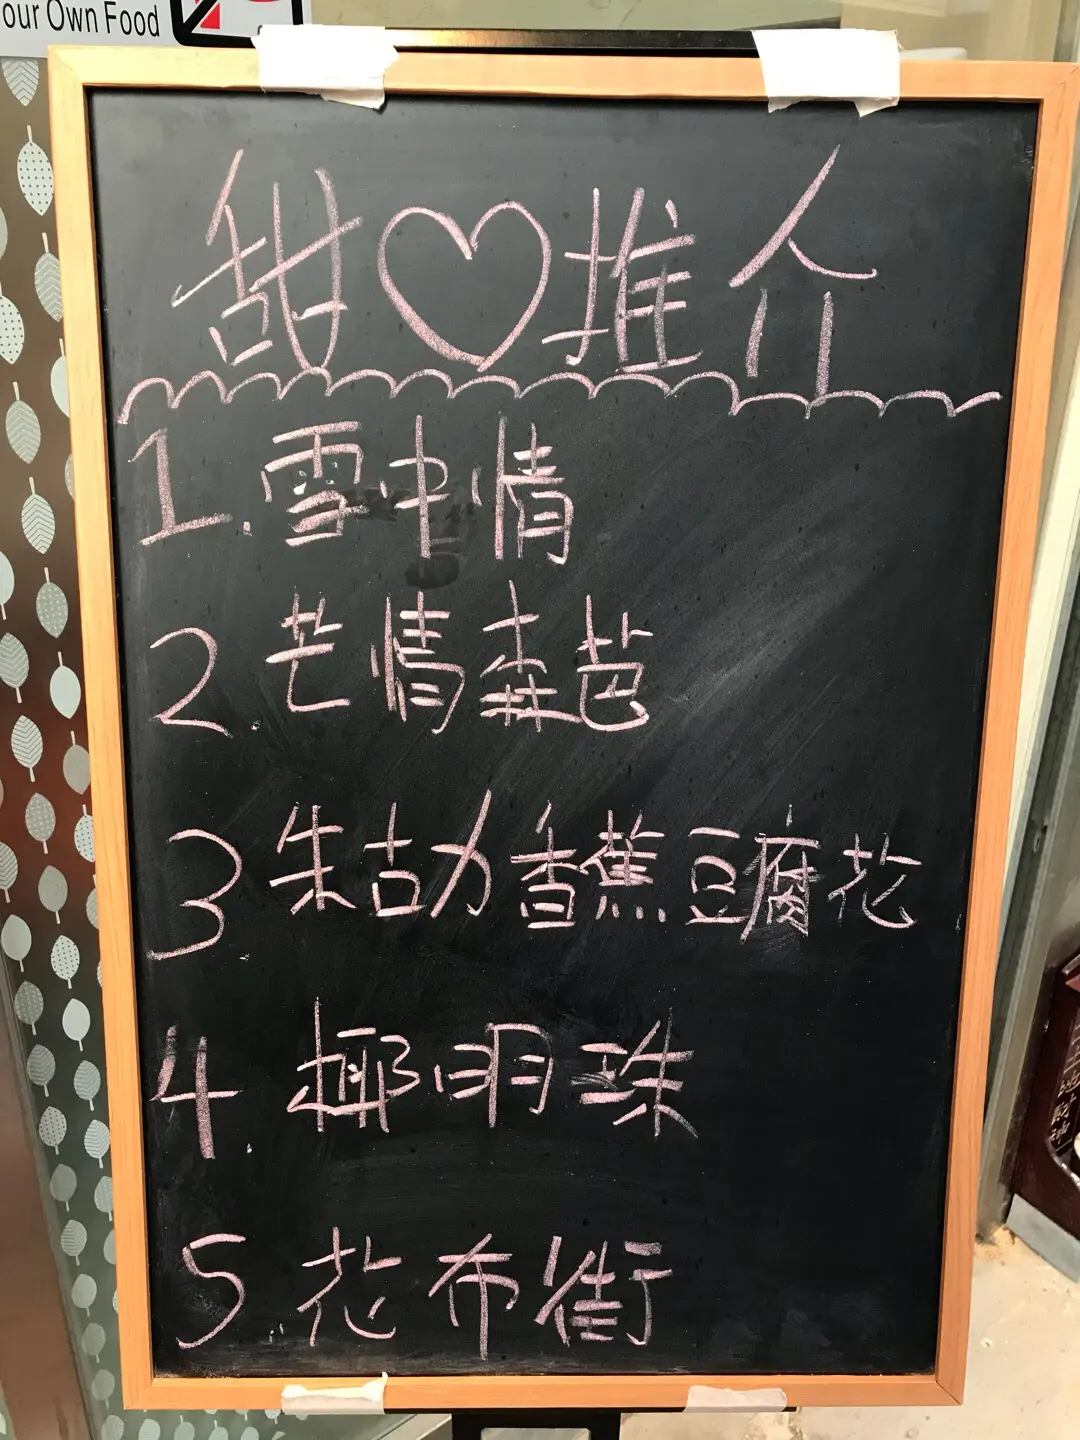 our Own Food
甜♡推介
1. 雪中情
2. 芒情森芭
3. 朱古力香蕉豆腐花
4. 椰明珠
5. 花布街